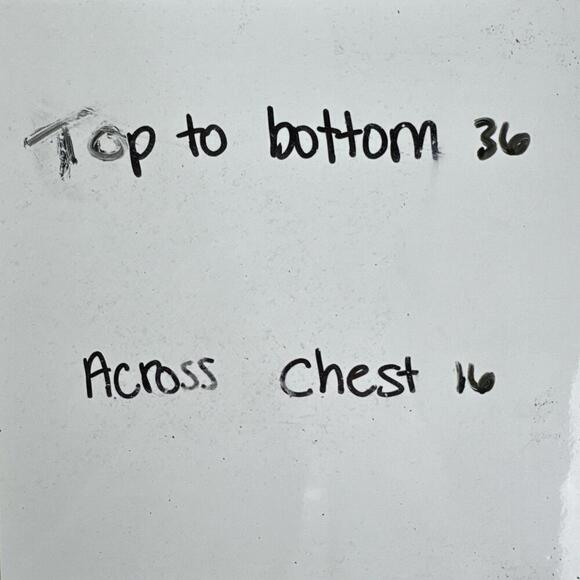 Top to bottom 36
Across Chest 16